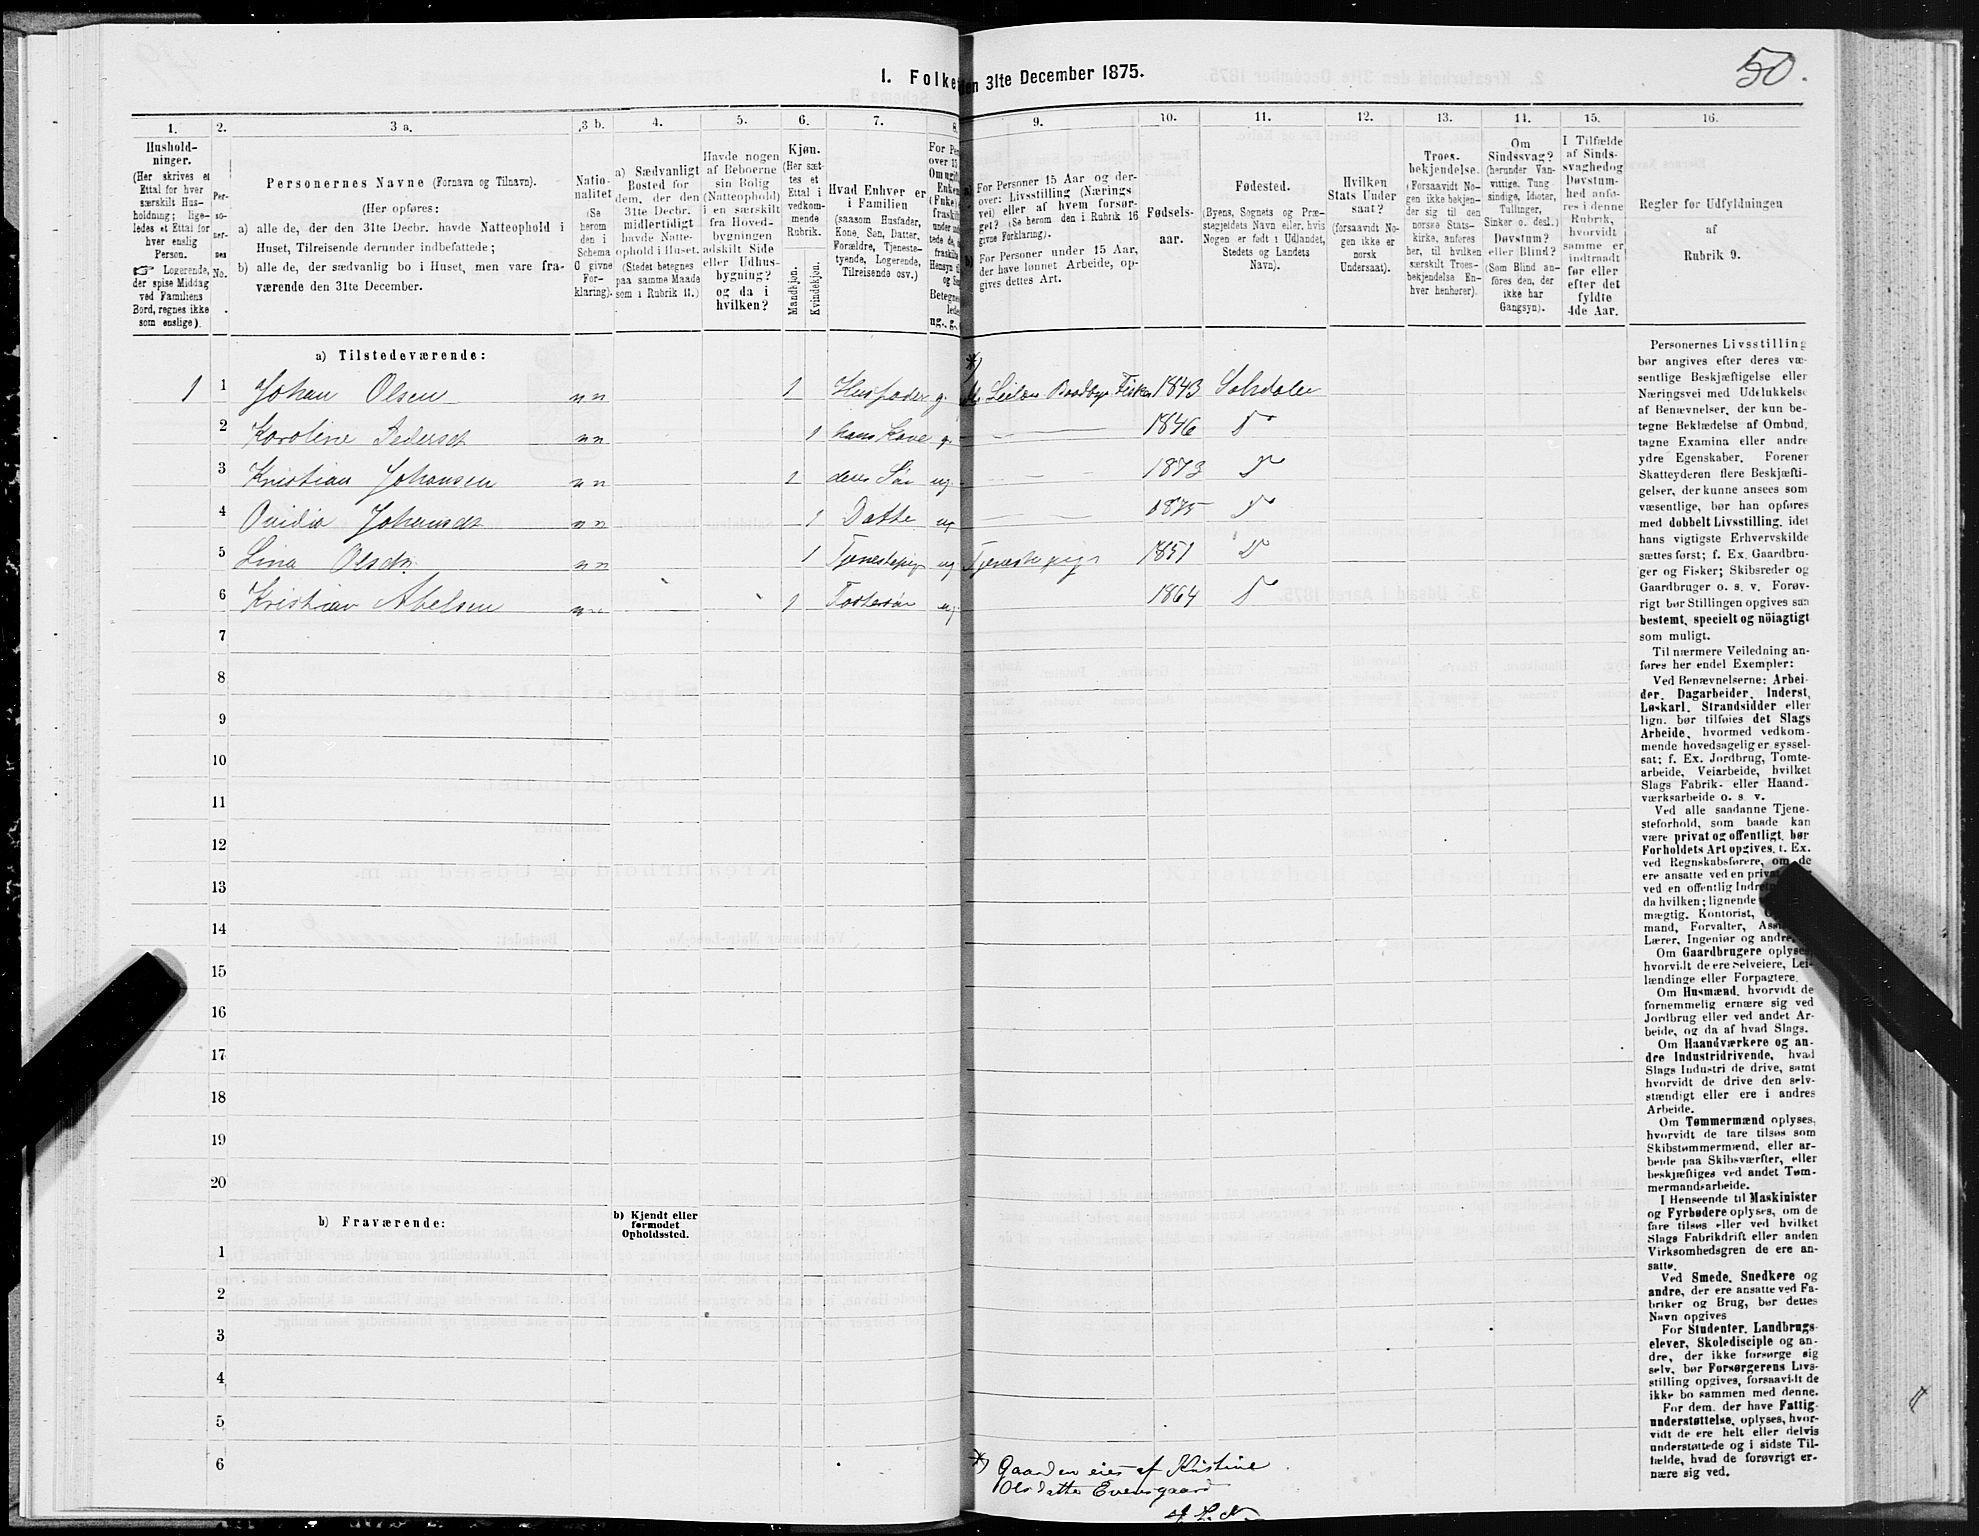 50.
1. Folke den 31te December 1875.
1. 2. 3 a. 3 b. 4. 5. 6. 7. 8. 9. 10. 11. 12. 13. 14. 15. 16.
Hushold-
ninger.
(Her skrives et
Ettal for hver
særskilt Hus-
holdning; lige-
ledes et Ettal for
hver enslig
Person.
☞ Logerende,
der spise Middag
ved Familiens
Bord, regnes ikke
som enslige).
Per-
so-
ner-
nes
No.
Personernes Navne (Fornavn og Tilnavn).
(Her opføres:
a) alle de, der den 31te Decbr. havde Natteophold i
Huset, Tilreisende derunder indbefattede;
b) alle de, der sædvanlig bo i Huset, men vare fra-
værende den 31te December.
Natio-
nalitet
(Se
herom
den i
Schema
C givne
For-
klaring).
a) Sædvanligt
Bosted for
dem, der den
31te Decbr.
midlertidigt
havde Natte-
ophold i Huset.
(Stedet betegnes
paa samme Maade
som i Rubrik 11.)
Havde nogen
af Beboerne
sin Bolig
(Natteophold)
i en særskilt
fra Hoved-
bygningen
adskilt Side
eller Udhus-
bygning?
og da i
hvilken?
Kjøn.
(Her sæt-
tes et
Ettal i
vedkom-
mende
Rubrik.
Mandkjøn.
Kvindekjøn.
Hvad Enhver er
i Familien
(saasom Husfader,
Kone, Søn, Datter,
Forældre, Tjeneste-
tyende, Logerende,
Tilreisende osv.)
For Per
over 15
Om ugift
Enken
(Fnke)
fraskilt
ug., g.,
For Personer 15 Aar og der-
over: Livsstilling (Nærings
vei) eller af hvem forsør-
get? (Se herom den i Rubrik 16
givne Forklaring).
For Personer under 15 Aar,
der have lønnet Arbeide, op-
gives dettes Art.
Fødsels-
aar.
Fødested.
(Byens, Sognets og Præ-
stegjeldets Navn eller, hvis
Nogen er født i Udlandet,
Stedets og Landets
Navn).
Hvilken
Stats Under
saat?
(forsaavidt No-
gen ikke er
norsk
Undersaat).
Troes-
bekjendelse.
(Forsaavidt No-
gen ikke bekjen-
der sig til den
norske Stats-
kirke, anføres
her, til hvilken
særskilt Troes-
bekjendelse En-
hver henhører).
Om
Sindssvag?
(herunder Van-
vittige, Tung
sindige, Idioter,
Tullinger,
Sinker o. desl.)
Døvstum?
eller Blind?
(Som Blind an-
føres den, der
ikke har
Gangsyn).
I Tilfælde
af Sinds-
svaghed og
Døvstum-
hed anfø-
res i denne
Rubrik,
hvorvidt
samme er
indtraadt
før eller
efter det
fyldte
4de Aar.
Regler for Udfyldningen
af
Rubrik 9.
a) Tilstedeværende:
1 1 Johan Olsen nn 1 Husfader g. Fisker 1843 Sokndalen
2 Karoline Pedersd nn 1 hans Kone g. 1846 D
3 Kristian Johansen nn 1 deres Søn ug. 1873 D
4 Johansd nn 1 Datte ug 1875 D
5 Lina Olsdtr nn 1 Tjenestepige ug Tjenestepige 1851 D
6 Kristian Abelsen nn 1 ug. 1864 D
7
8
9
10
11
12
13
14
15
16
17
18
19
20
b) Fraværende:
b) Kjendt eller
formodet
Opholdssted.
1
2
3
4
5
6
*) Gaarden eies af Kristine
Olsdatter
Personernes Livsstilling
bør angives efter deres væ-
sentlige Beskjæftigelse eller
Næringsvei med Udelukkelse
af Benævnelser, der kun be-
tegne Beklædelse af Ombud,
tagne Examina eller andre
ydre Egenskaber. Forener
Skatteyderen flere Beskjæfti-
gelser, der kunne ansees som
væsentlige, bør han opføres
med dobbelt Livsstilling, idet
hans vigtigste Erhvervskilde
sættes først; f. Ex. Gaardbru-
ger og Fisker; Skibsreder og
Gaardbruger o. s. v. Forøv-
rigt bør Stillingen opgives saa
bestemt, specielt og nöiagtigt
som muligt.
Til nærmere Veiledning an-
føres her endel Exempler:
Ved Benævnelserne: Arbei-
der, Dagarbeider, Inderst,
Løskarl, Strandsidder eller
lign. bør tilføies det Slags
Arbeide, hvormed vedkom-
mende hovedsagelig er syssel-
sat; f. Ex. Jordbrug, Tomte-
arbeide, Veiarbeide, hvilket
Slags Fabrik- eller Haand-
værksarbeide o. s. v.
Ved alle saadanne Tjene-
steforhold, som baade kan
være privat og offentligt, bør
Forholdets Art opgives, f. Ex.
ved Regnskabsførere, om de
ere ansatte ved en privat
ved en offentlig
da hvilken; lignende
mægtig, Kontorist,
mand, Forvalter,
Lærer, Ingeniør og andre.
Om Gaardbrugere oplyses,
hvorvidt de ere Selveiere, Lei-
lændinge eller Forpagtere.
Om Husmænd, hvorvidt de
fornemmelig ernære sig ved
Jordbrug eller ved andet Ar-
beide, og da af hvad Slags.
Om Haandværkere og an-
dre Industridrivende, hvad
Slags Industri de drive, samt
hvorvidt de drive den selv-
stændigt eller ere i andres
Arbeide.
Om Tømmermænd oplyses,
hvorvidt de fare tilsøs som
Skibstømmermænd, eller ar-
beide paa Skibsværfter, eller
beskjæftiges ved andet Tøm-
mermandsarbeide.
I Henseende til Maskinister
og Fyrbødere oplyses, om de
fare tilsøs eller ved hvilket
Slags Fabrikdrift eller anden
Virksomhedsgren de ere an-
satte.
Ved Smede, Snedkere og
andre, der ere ansatte ved Fa-
briker og Brug, bør dettes
Navn opgives
For Studenter, Landbrugs-
elever, Skoledisciple og an-
dre, der ikke forsørge sig
selv, bør Forsørgerens Livs-
stilling opgives, forsaavidt de
ikke bo sammen med denne.
For dem, der have Fattig-
understøttelse, oplyses, hvor-
vidt de ere helt eller delvis
understøttede og i sidste Til-
fælde, hvad de forøvrigt er-
nære sig ved.